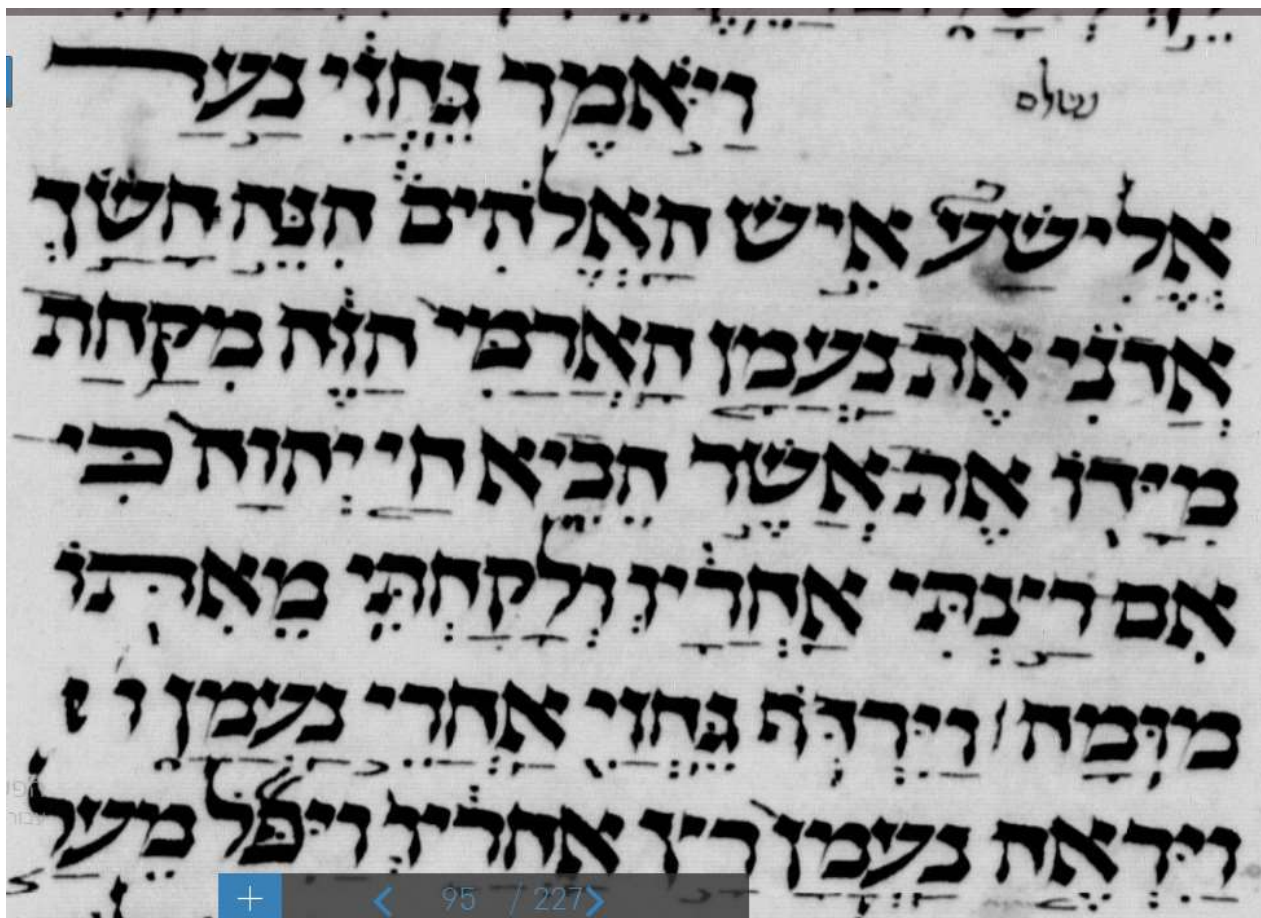 נשלם
ויאמר גחזי נער
אלישע איש האלהים הנה חשך
אדני את נעמן הארמי הזה מקחת
מידו את אשר הביא חי יהוה כי
אם רצתי אחריו ולקחתי מאתו
מומה וירדף גחזי אחרי נעמן
ויראה נעמן רץ אחריו ויפל מעל
95 / 227